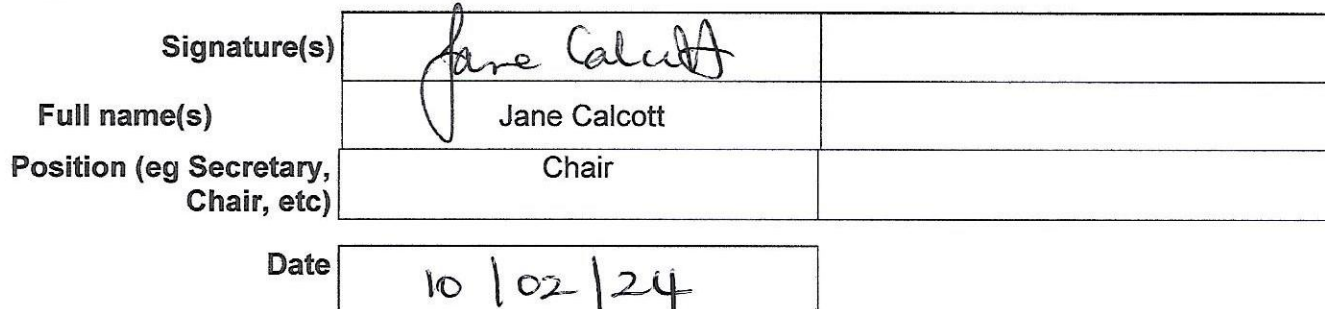 Signature(s) Jane Calcott
Full name(s) Jane Calcott
Position (eg Secretary, Chair
Chair, etc)
Date 10/02/24